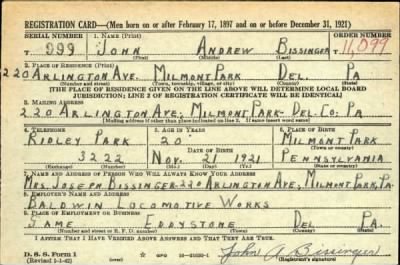 REGISTRATION CARD—(Men born on or after February 17, 1897 and on or before December 31, 1921)
SERIAL NUMBER 1. NAME (Print) ORDER NUMBER
T 999 JOHN ANDREW BISSINGER 11,099
(First) (Middle) (Last)
2. PLACE OF RESIDENCE (Print)
220 ARLINGTON AVE. MILMONT PARK DEL. PA
(Number and street) (Town, township, village, or city) (County) (State)
[THE PLACE OF RESIDENCE GIVEN ON THE LINE ABOVE WILL DETERMINE LOCAL BOARD
JURISDICTION; LINE 2 OF REGISTRATION CERTIFICATE WILL BE IDENTICAL]
3. MAILING ADDRESS
220 ARLINGTON AVE; MILMONT PARK- DEL. CO; PA
[Mailing address if other than place indicated on line 2. If same insert word same]
4. TELEPHONE 5. AGE IN YEARS 6. PLACE OF BIRTH
RIDLEY PARK 20 MILMONT PARK
DATE OF BIRTH (Town or county)
3222 NOV. 21 1921 PENNSYLVANIA
(Exchange) (Number) (Mo.) (Day) (Yr.) (State or country)
7. NAME AND ADDRESS OF PERSON WHO WILL ALWAYS KNOW YOUR ADDRESS
MRS. JOSEPH BISSINGER-220 ARLINGTON AVE, MILMONT PARK, PA.
8. EMPLOYER'S NAME AND ADDRESS
BALDWIN LOCOMOTIVE WORKS
9. PLACE OF EMPLOYMENT OR BUSINESS
SAME EDDYSTONE DEL. PA.
(Number and street or R. F. D. number) (Town) (County) (State)
I AFFIRM THAT I HAVE VERIFIED ABOVE ANSWERS AND THAT THEY ARE TRUE.
D. S. S. Form 1 GPO John A Bissinger
(Revised 1-1-42) (Registrant's signature)